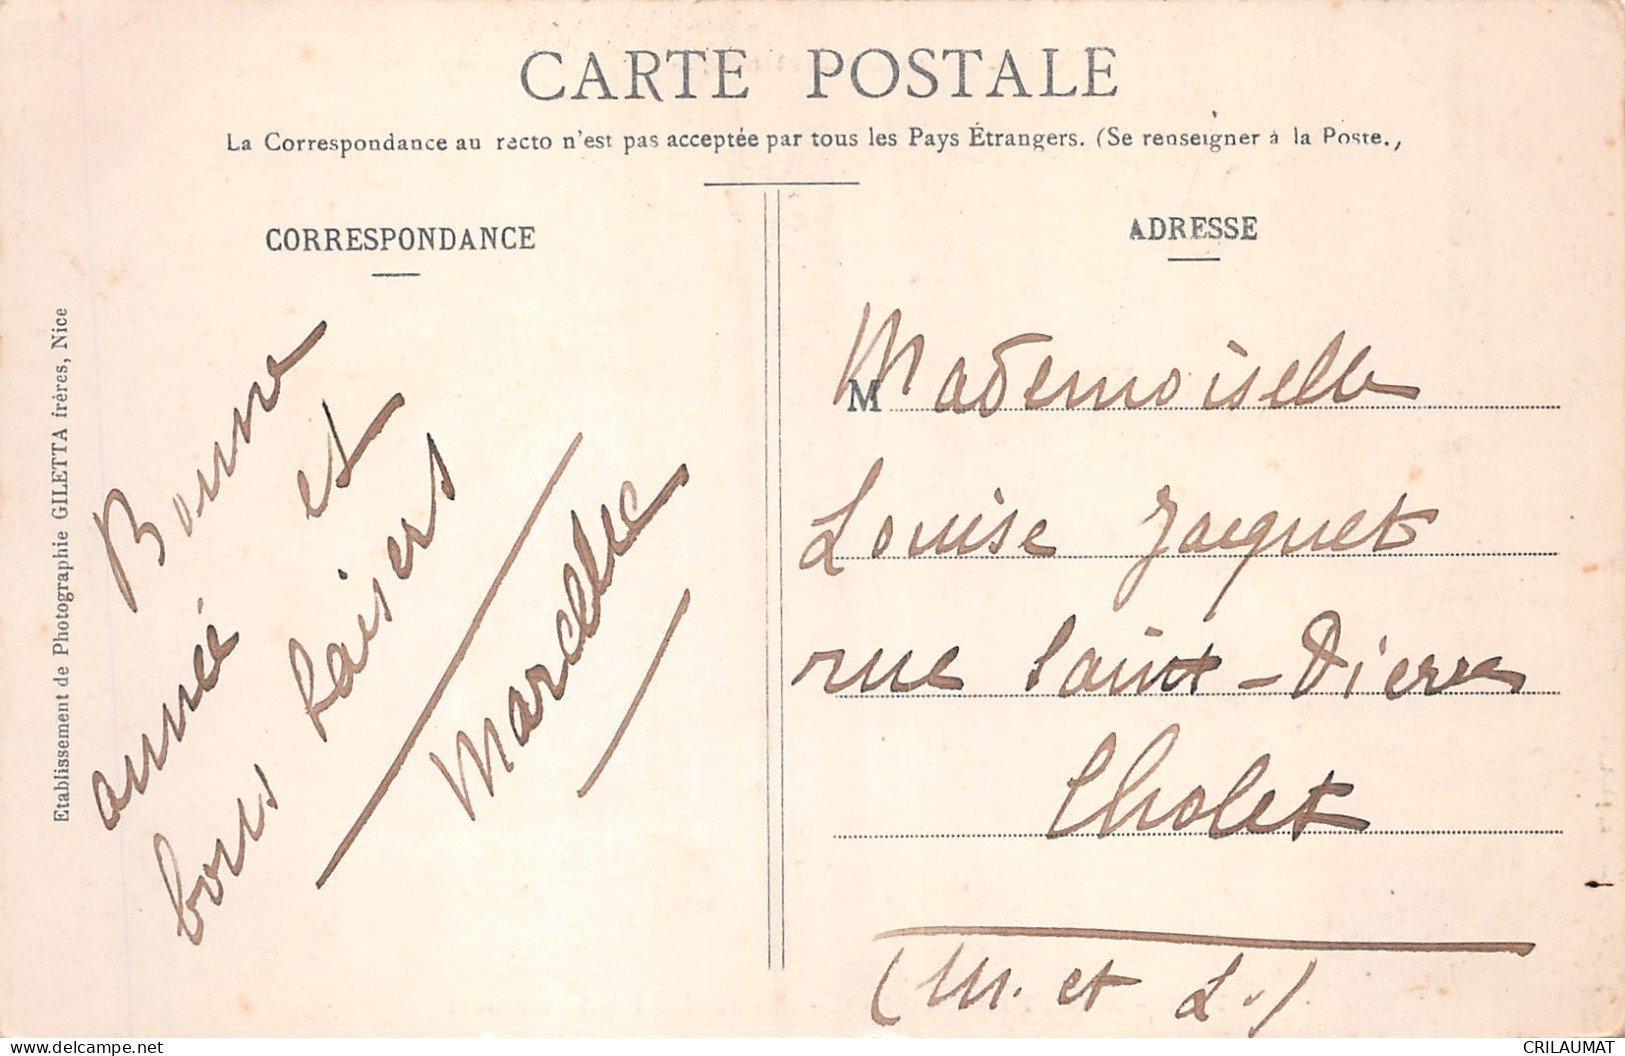 CARTE POSTALE
La Correspondance au recto n'est pas acceptée par tous les Pays Étrangers. (Se renseigner à la Poste.)
CORRESPONDANCE
ADRESSE
Etablissement de Photographie GILETTA frères, Nice
Bonne
année et
bons baisers
Marcelle
M
Mademoiselle
Louise Jacquet
rue Saint-Pierre
Cholet
(M. et L.)
delcampe.net
CRILAUMAT